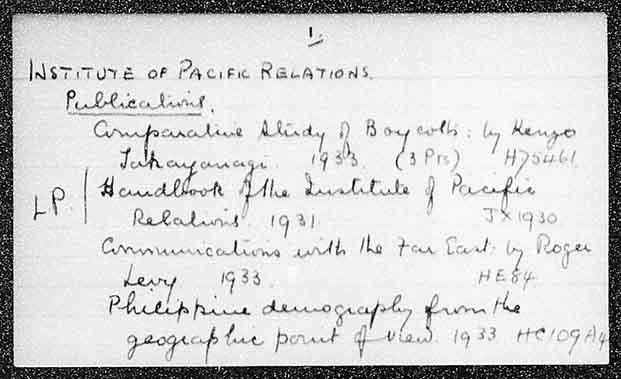 1.
INSTITUTE OF PACIFIC RELATIONS.
Publications.
Comparative Study of Boycotts: by Kenzo
Takayanagi. 1933. (3 Pts) H75461.
LP. Handbook of the Institute of Pacific
Relations. 1931. JX1930
Communications with the Far East: by Roger
Levy 1933. HE84.
Philippine demography from the
geographic point of view. 1933 HC109A4